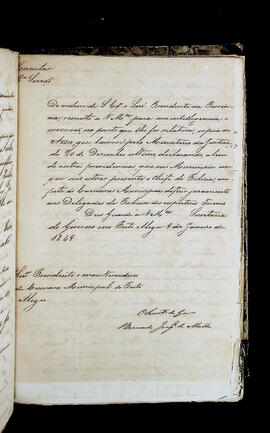 Circular
De ordem de S. Ex.ª o Snr. Presidente da Provin
cia, remetto a V. M.ces para sua intelligencia e
execução na parte que lhe for relativa, copia do
Aviso que baixou pelo Ministerio da Justiça
de 20 de Dezembro ultimo declarando, alem
de outras providencias, que nos Municipios em
que não estiver presente o Chefe de Policia, com
pete às Camaras Municipaes deferir juramento
aos Delegados de Policia dos respectivos Termos
Deos Guarde a V. M.ces Secretaria
do Governo em Porto Alegre 8 de Janeiro de
1849
Snr.es Presidente e mais Vereadores
da Camara Municipal de Porto
Alegre
Bernardo Joaq.m de Mattos